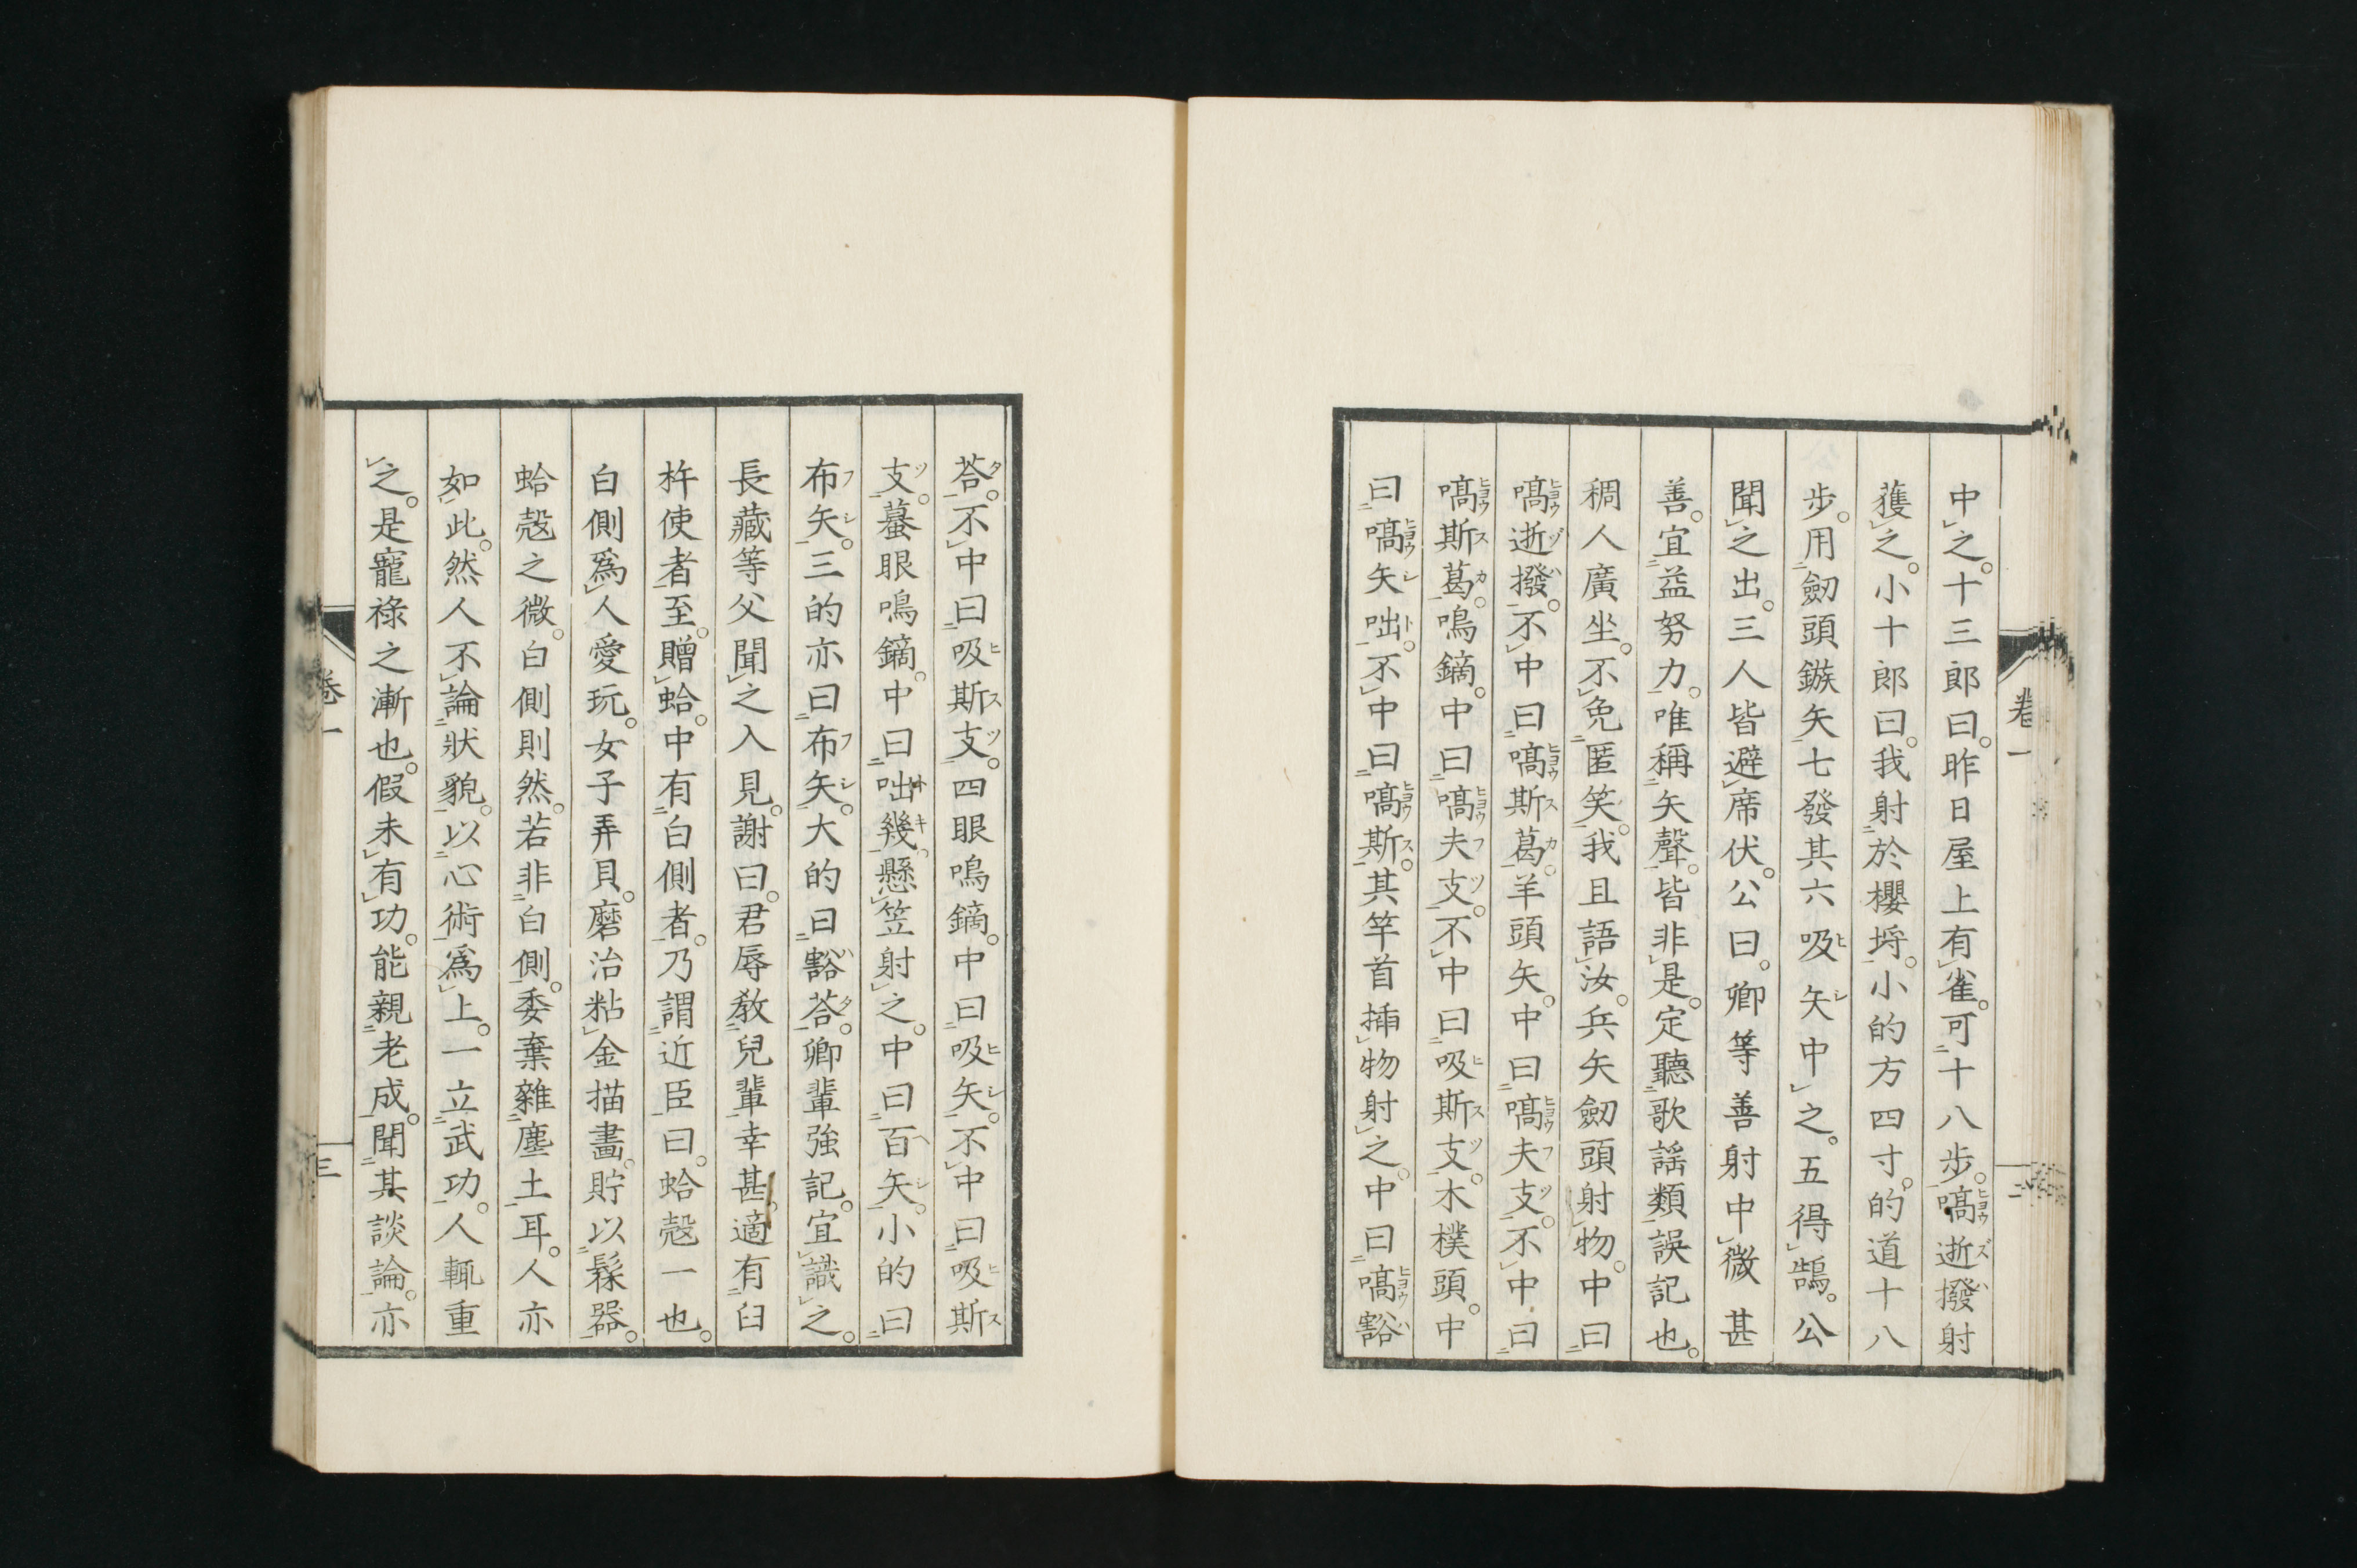 中之。十三郎曰。昨日屋上有雀。可十八步。嗃逝撥射
獲之。小十郎曰。我射於櫻埓。小的方四寸。的道十八
步。用劒頭鏃矢七發其六吸矢中之。五得鵠。公
聞之出。三人皆避席伏。公曰。卿等善射中微甚
善。宜益努力。唯稱矢聲。皆非是。定聽歌謡類誤記也。
稠人廣坐。不免匿笑。我且語汝。兵矢劒頭射物。中曰
嗃逝撥。不中曰嗃斯葛。羊頭矢。中曰嗃夫支。不中曰
嗃斯葛。鳴鏑。中曰嗃夫支。不中曰吸斯支。木樸頭。中
曰嗃矢咄。不中曰嗃斯。其竿首揷物射之。中曰嗃豁
荅。不中曰吸斯支。四眼鳴鏑。中曰吸矢。不中曰吸斯
支。蟇眼鳴鏑。中曰咄幾。懸笠射之。中曰百矢。小的曰
布矢。三的亦曰布矢。大的曰豁荅。卿輩強記。宜識之。
長藏等父聞之入見。謝曰。君辱敎兒輩。幸甚。適有臼
杵使者至。贈蛤。中有白側者。乃謂近臣曰。蛤殼一也。
白側爲人愛玩。女子弄貝。磨治粘金描畵。貯以髹器。
蛤殼之微。白側則然。若非白側。委棄雜塵土耳。人亦
如此。然人不論狀貌。以心術爲上。一立武功。人輒重
之。是寵祿之漸也。假未有功。能親老成。聞其談論。亦
卷一
二
卷一
三